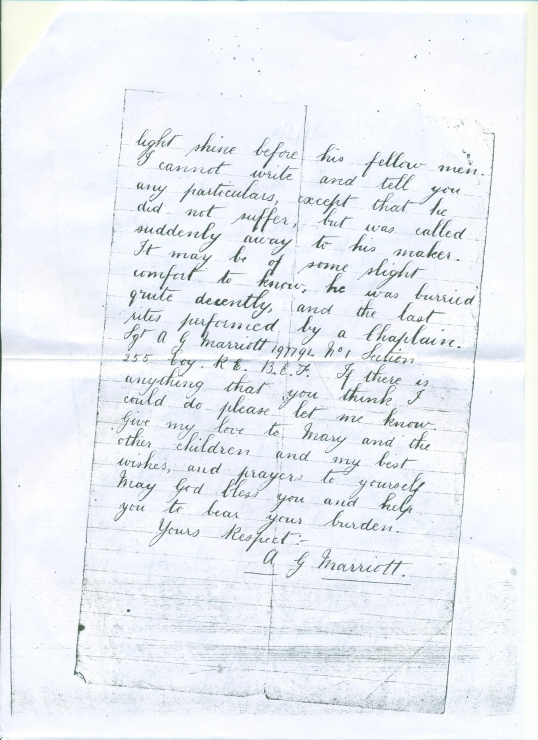 light shine before his fellow men.
I cannot write and tell you
any particulars, except that he
did not suffer, but was called
suddenly away to his maker.
It may be of some slight
comfort to know, he was burried
quite decently, and the last
rites performed by a Chaplain.
Sgt A G Marriott No 1 Section
255 Coy. R.E. B.E.F. If there is
anything that you think I
could do please let me know.
Give my love to Mary and the
other children and my best
wishes, and prayers to yourself
May God bless you and help
you to bear your burden.
Yours Respect:-
A G Marriott.